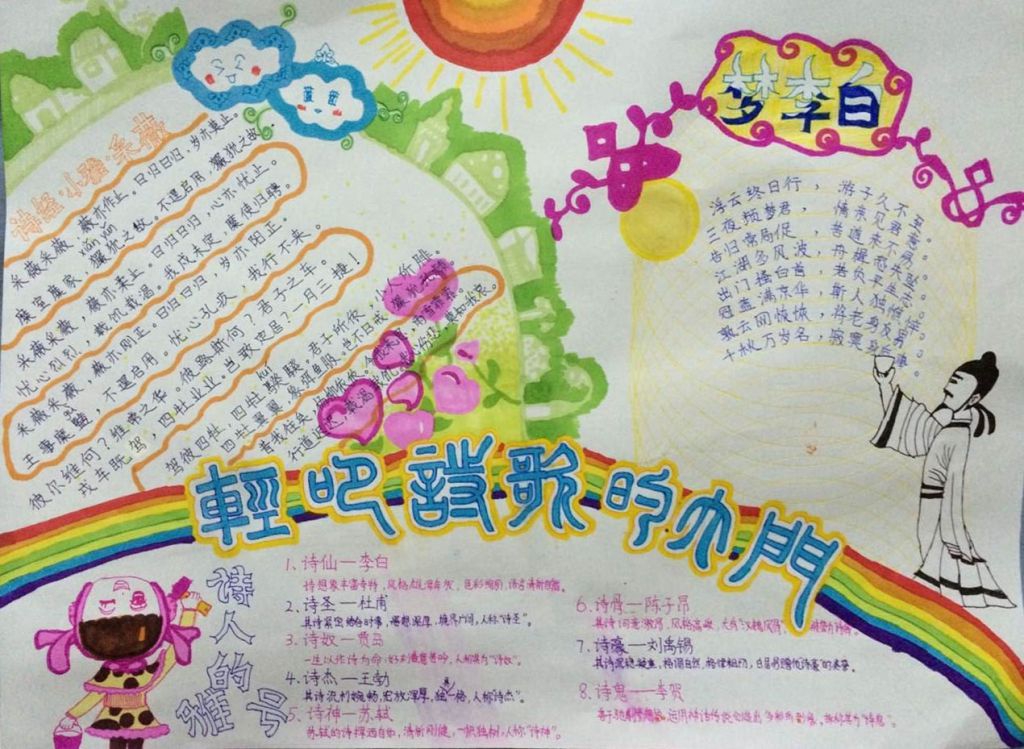 诗经·小雅·采薇
采薇采薇,薇亦作止。曰归曰归,岁亦莫止。
xiǎn yǔn
靡室靡家,玁狁之故。不遑启居,玁狁之故。
采薇采薇,薇亦柔止。曰归曰归,心亦忧止。
忧心烈烈,载饥载渴。我戍未定,靡使归聘。
采薇采薇,薇亦刚止。曰归曰归,岁亦阳止。
王事靡盬,不遑启居。忧心孔疚,我行不来。
彼尔维何?维常之华。彼路斯何?君子之车。
戎车既驾,四牡业业。岂敢定居?一月三捷!
kuí
驾彼四牡,四牡骙骙。君子所依,小人所腓。
四牡翼翼,象弭鱼服。岂不日戒,
昔我往矣,杨柳依依。
行道迟迟,载渴
梦李白
浮云终日行,游子久不至。
三夜频梦君,情亲见君意。
告归常局促,苦道来不易。
江湖多风波,舟楫恐失坠。
出门搔白首,若负平生志。
冠盖满京华,斯人独憔悴。
孰云网恢恢,将老身反
千秋万岁名,寂寞身后事。
輕吧詩歌的大門
诗人的雅号
1、诗仙—李白
诗想象丰富奇特,风格雄浑奔放,色彩绚丽,语言清新
2、诗圣—杜甫
其诗紧密结合时事,思想深厚,境界广阔,人称"诗圣"。
3、诗奴—贾岛
一生以作诗为命,好刻意苦吟,人称其为"诗奴"。
4、诗杰—王勃
其诗流利婉畅,宏放浑厚,独 格,人称"诗杰"。
5、诗神—苏轼
苏轼的诗挥洒自如,清新刚健,一代独树,人称"诗神"。
6、诗骨—陈子昂
其诗词意激昂,风格高峻,大有"汉魏风骨",
7、诗豪—刘禹锡
其诗沉稳凝重,格调自然,格律粗切,白居易赠他诗豪的美誉。
8、诗鬼—李贺